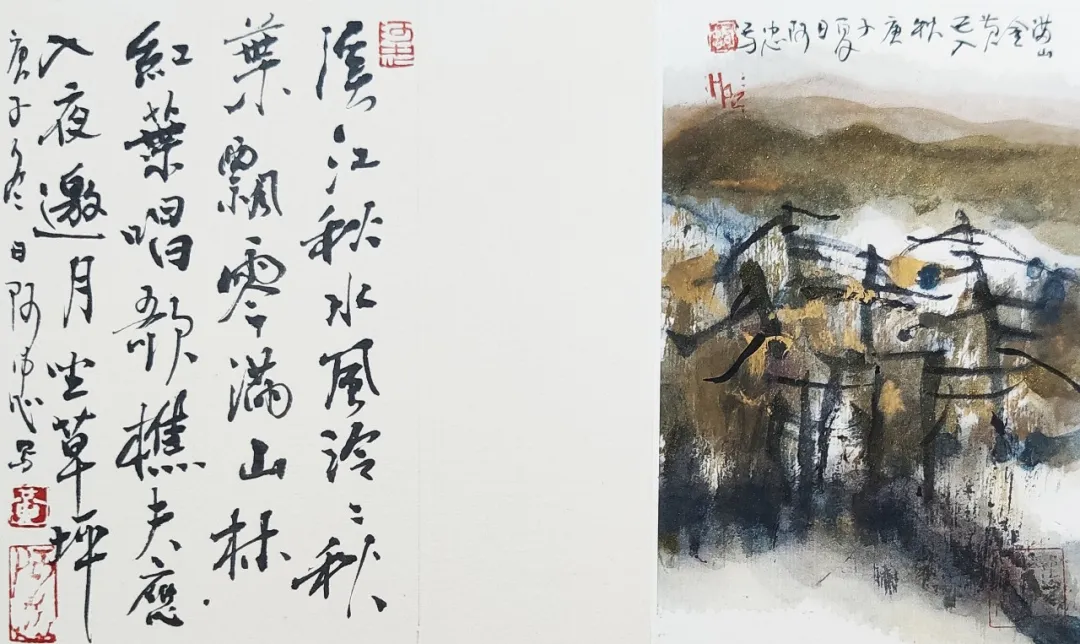 溪江秋水風泠〻秋
葉飄零滿山林
紅葉唱歌樵夫應
入夜邀月坐草坪
庚子冬日阿忠写
黄
满山金黄已入秋庚子夏日阿忠写